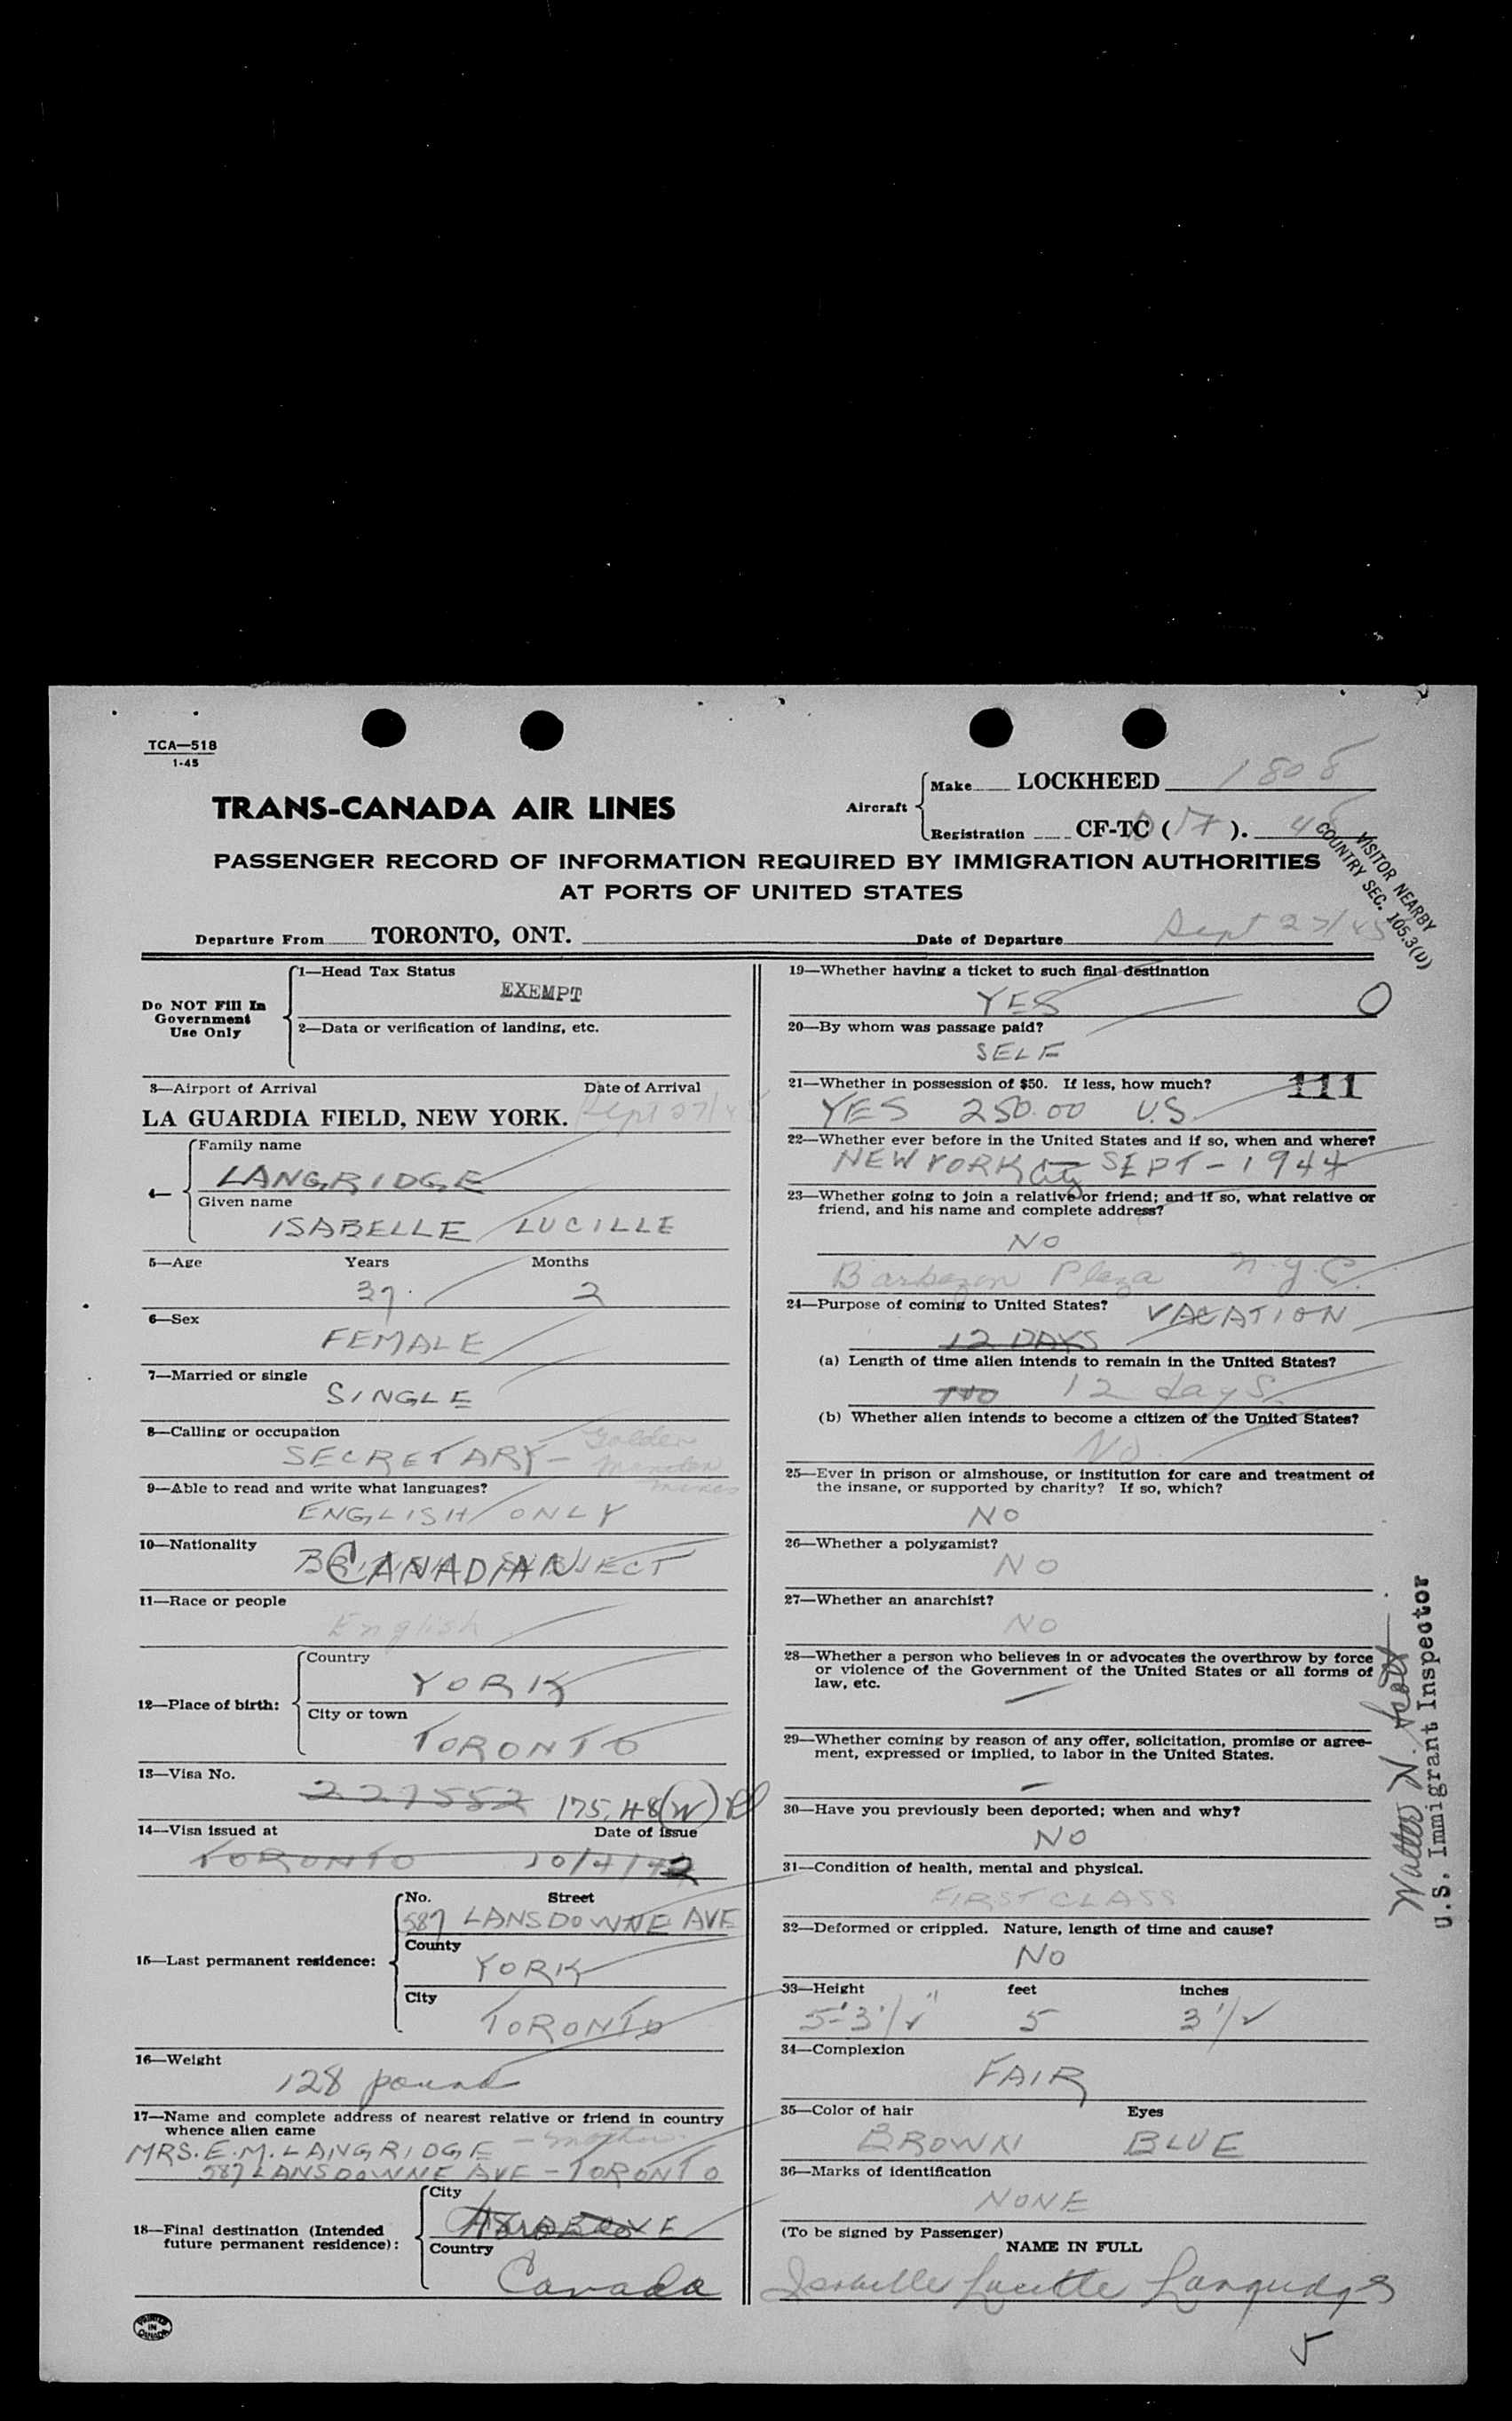 TCA—518
1-45
TRANS-CANADA AIR LINES
Aircraft
Make LOCKHEED 1808
Registration CF-TC ( ).
VISITOR NEARBY
COUNTRY SEC. 105.3(U)
PASSENGER RECORD OF INFORMATION REQUIRED BY IMMIGRATION AUTHORITIES
AT PORTS OF UNITED STATES
Departure From TORONTO, ONT. Date of Departure Sept 27/45
Do NOT Fill In
Government
Use Only
1—Head Tax Status
EXEMPT
2—Data or verification of landing, etc.
3—Airport of Arrival Date of Arrival
LA GUARDIA FIELD, NEW YORK. Sept 27/
4—
Family name
LANGRIDGE
Given name
ISABELLE LUCILLE
5—Age Years Months
37 2
6—Sex
FEMALE
7—Married or single
SINGLE
8—Calling or occupation
SECRETARY - Golden
9—Able to read and write what languages?
ENGLISH ONLY
10—Nationality
CANADIAN
11—Race or people
English
12—Place of birth:
Country
YORK
City or town
TORONTO
13—Visa No.
227552 175.48(W)
14—Visa issued at Date of issue
TORONTO 10/4/42
15—Last permanent residence:
No. Street
587 LANSDOWNE AVE
County
YORK
City
TORONTO
16—Weight
128 pound
17—Name and complete address of nearest relative or friend in country
whence alien came
MRS. E. M. LANGRIDGE - mother
587 LANSDOWNE AVE - TORONTO
18—Final destination (Intended
future permanent residence):
City
Country
Canada
PRINTED
IN
CANADA
19—Whether having a ticket to such final destination
YES 0
20—By whom was passage paid?
SELF
21—Whether in possession of $50. If less, how much?
111
YES 250.00 U.S.
22—Whether ever before in the United States and if so, when and where?
NEW YORK City SEPT - 1944
23—Whether going to join a relative or friend; and if so, what relative or
friend, and his name and complete address?
NO
Barbazon Plaza N.Y.C.
24—Purpose of coming to United States? VACATION
12 DAYS
(a) Length of time alien intends to remain in the United States?
NO 12 days
(b) Whether alien intends to become a citizen of the United States?
NO
25—Ever in prison or almshouse, or institution for care and treatment of
the insane, or supported by charity? If so, which?
NO
26—Whether a polygamist?
NO
27—Whether an anarchist?
NO
28—Whether a person who believes in or advocates the overthrow by force
or violence of the Government of the United States or all forms of
law, etc.
—
29—Whether coming by reason of any offer, solicitation, promise or agree-
ment, expressed or implied, to labor in the United States.
—
30—Have you previously been deported; when and why?
NO
31—Condition of health, mental and physical.
FIRST CLASS
32—Deformed or crippled. Nature, length of time and cause?
NO
33—Height feet inches
5'-3 1/2" 5 3 1/2
34—Complexion
FAIR
35—Color of hair Eyes
BROWN BLUE
36—Marks of identification
NONE
(To be signed by Passenger)
NAME IN FULL
Isabelle Lucille Langridge
5
Walter N.
U.S. Immigrant Inspector